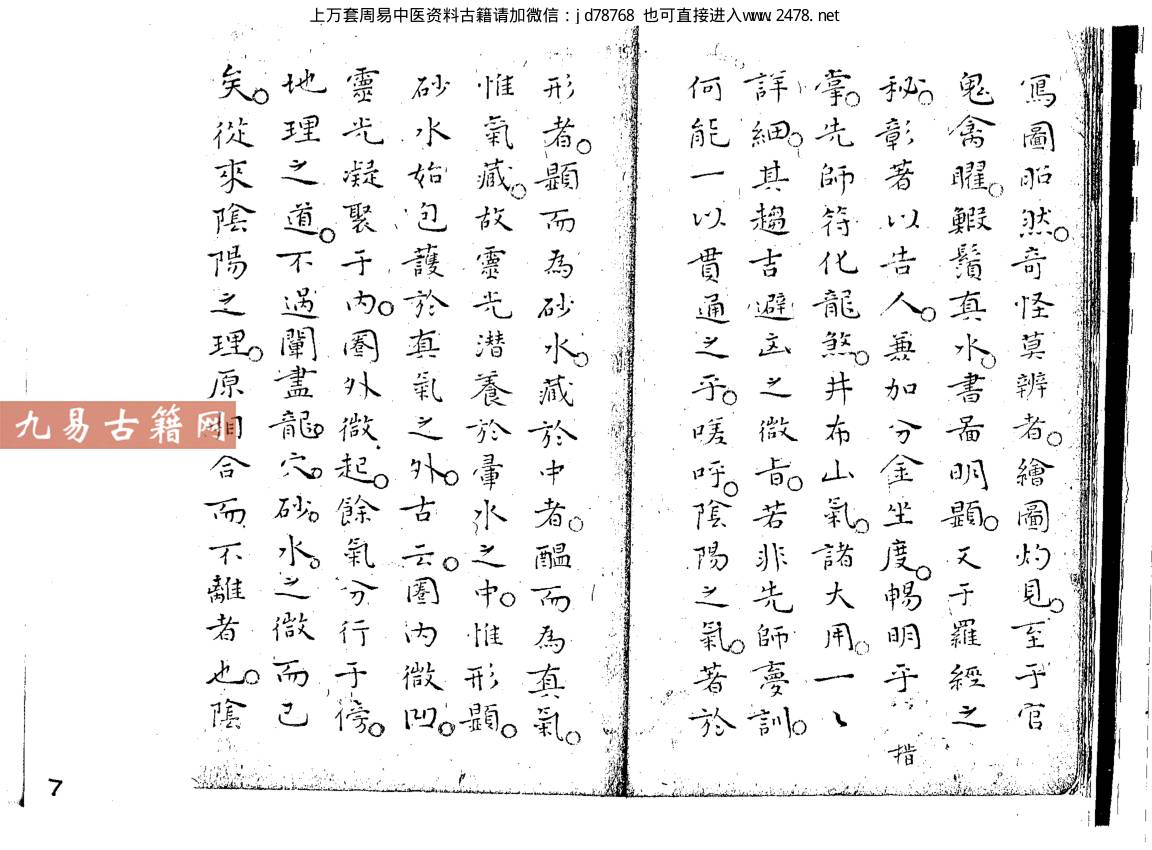 上万套周易中医资料古籍请加微信：jd78768 也可直接进入www.2478.net
寫圖昭然。奇怪莫辨者。繪圖灼見。至于官
鬼禽曜。鰕鬚真水。書畵明顯。又于羅經之
秘。彰著以告人。兼加分金坐度。暢明乎
指
掌。先師符化龍煞。井布山氣。諸大用。一一
詳細。其趨吉避凶之微旨。若非先師夢訓。
何能一以貫通之乎。嗟呼。陰陽之氣。著於
形者。顯而為砂水。藏於中者。醞而為真氣。
惟氣藏。故靈光潛養於暈水之中。惟形顯。
砂水始包護於真氣之外。古云。圈內微凹。
靈光凝聚于內。圈外微起。餘氣分行于傍。
地理之道。不過闡盡龍。穴。砂。水。之微而已
矣。從來陰陽之理。原相合而不離者也。陰
九易古籍网
7